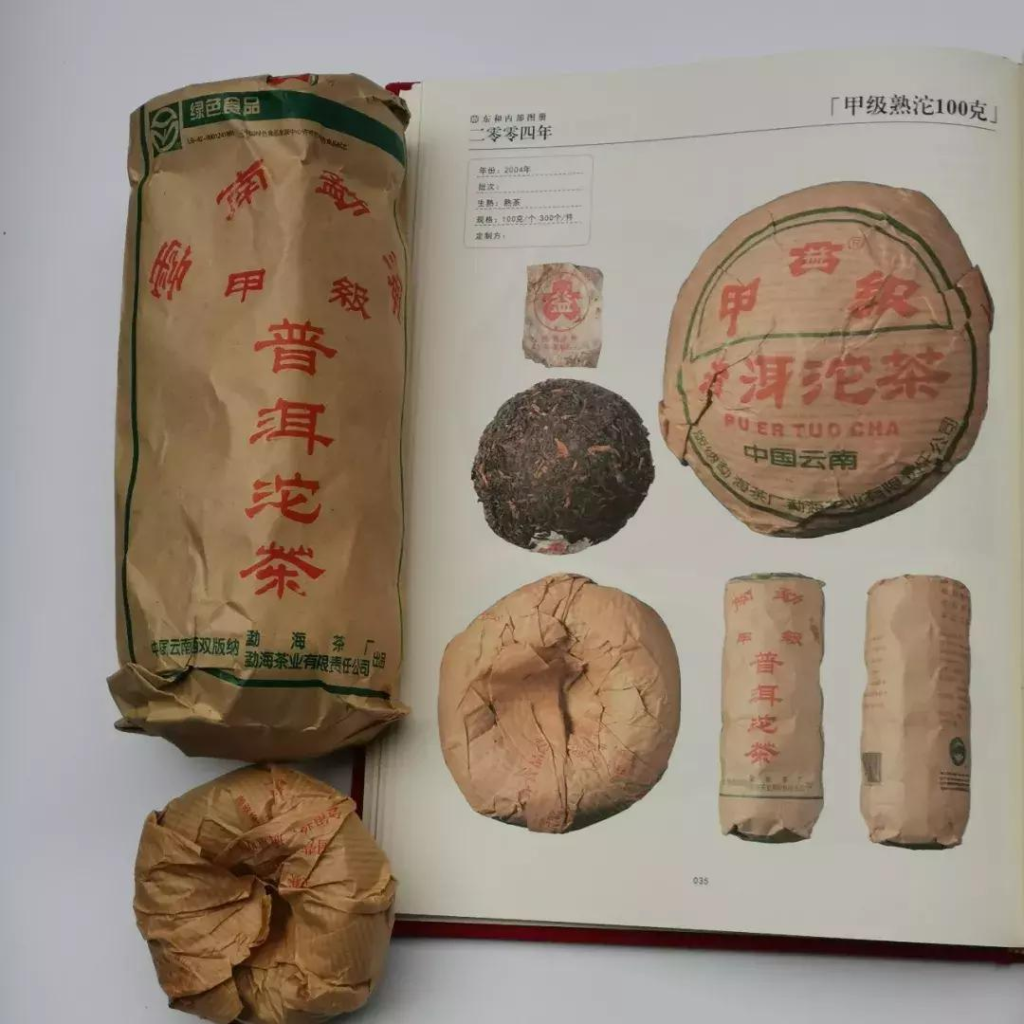 绿色食品
云南 勐海
甲级
普洱沱茶
中国云南西双版纳
勐海茶厂
勐海茶业有限责任公司
出品
东和内部图册
二零零四年
「甲级熟沱100克」
年份：2004年
批次：
生熟：熟茶
规格：100克/个 300个/件
定制方：
甲级
普洱沱茶
PU ER TUO CHA
中国云南
甲级
普洱沱茶
035